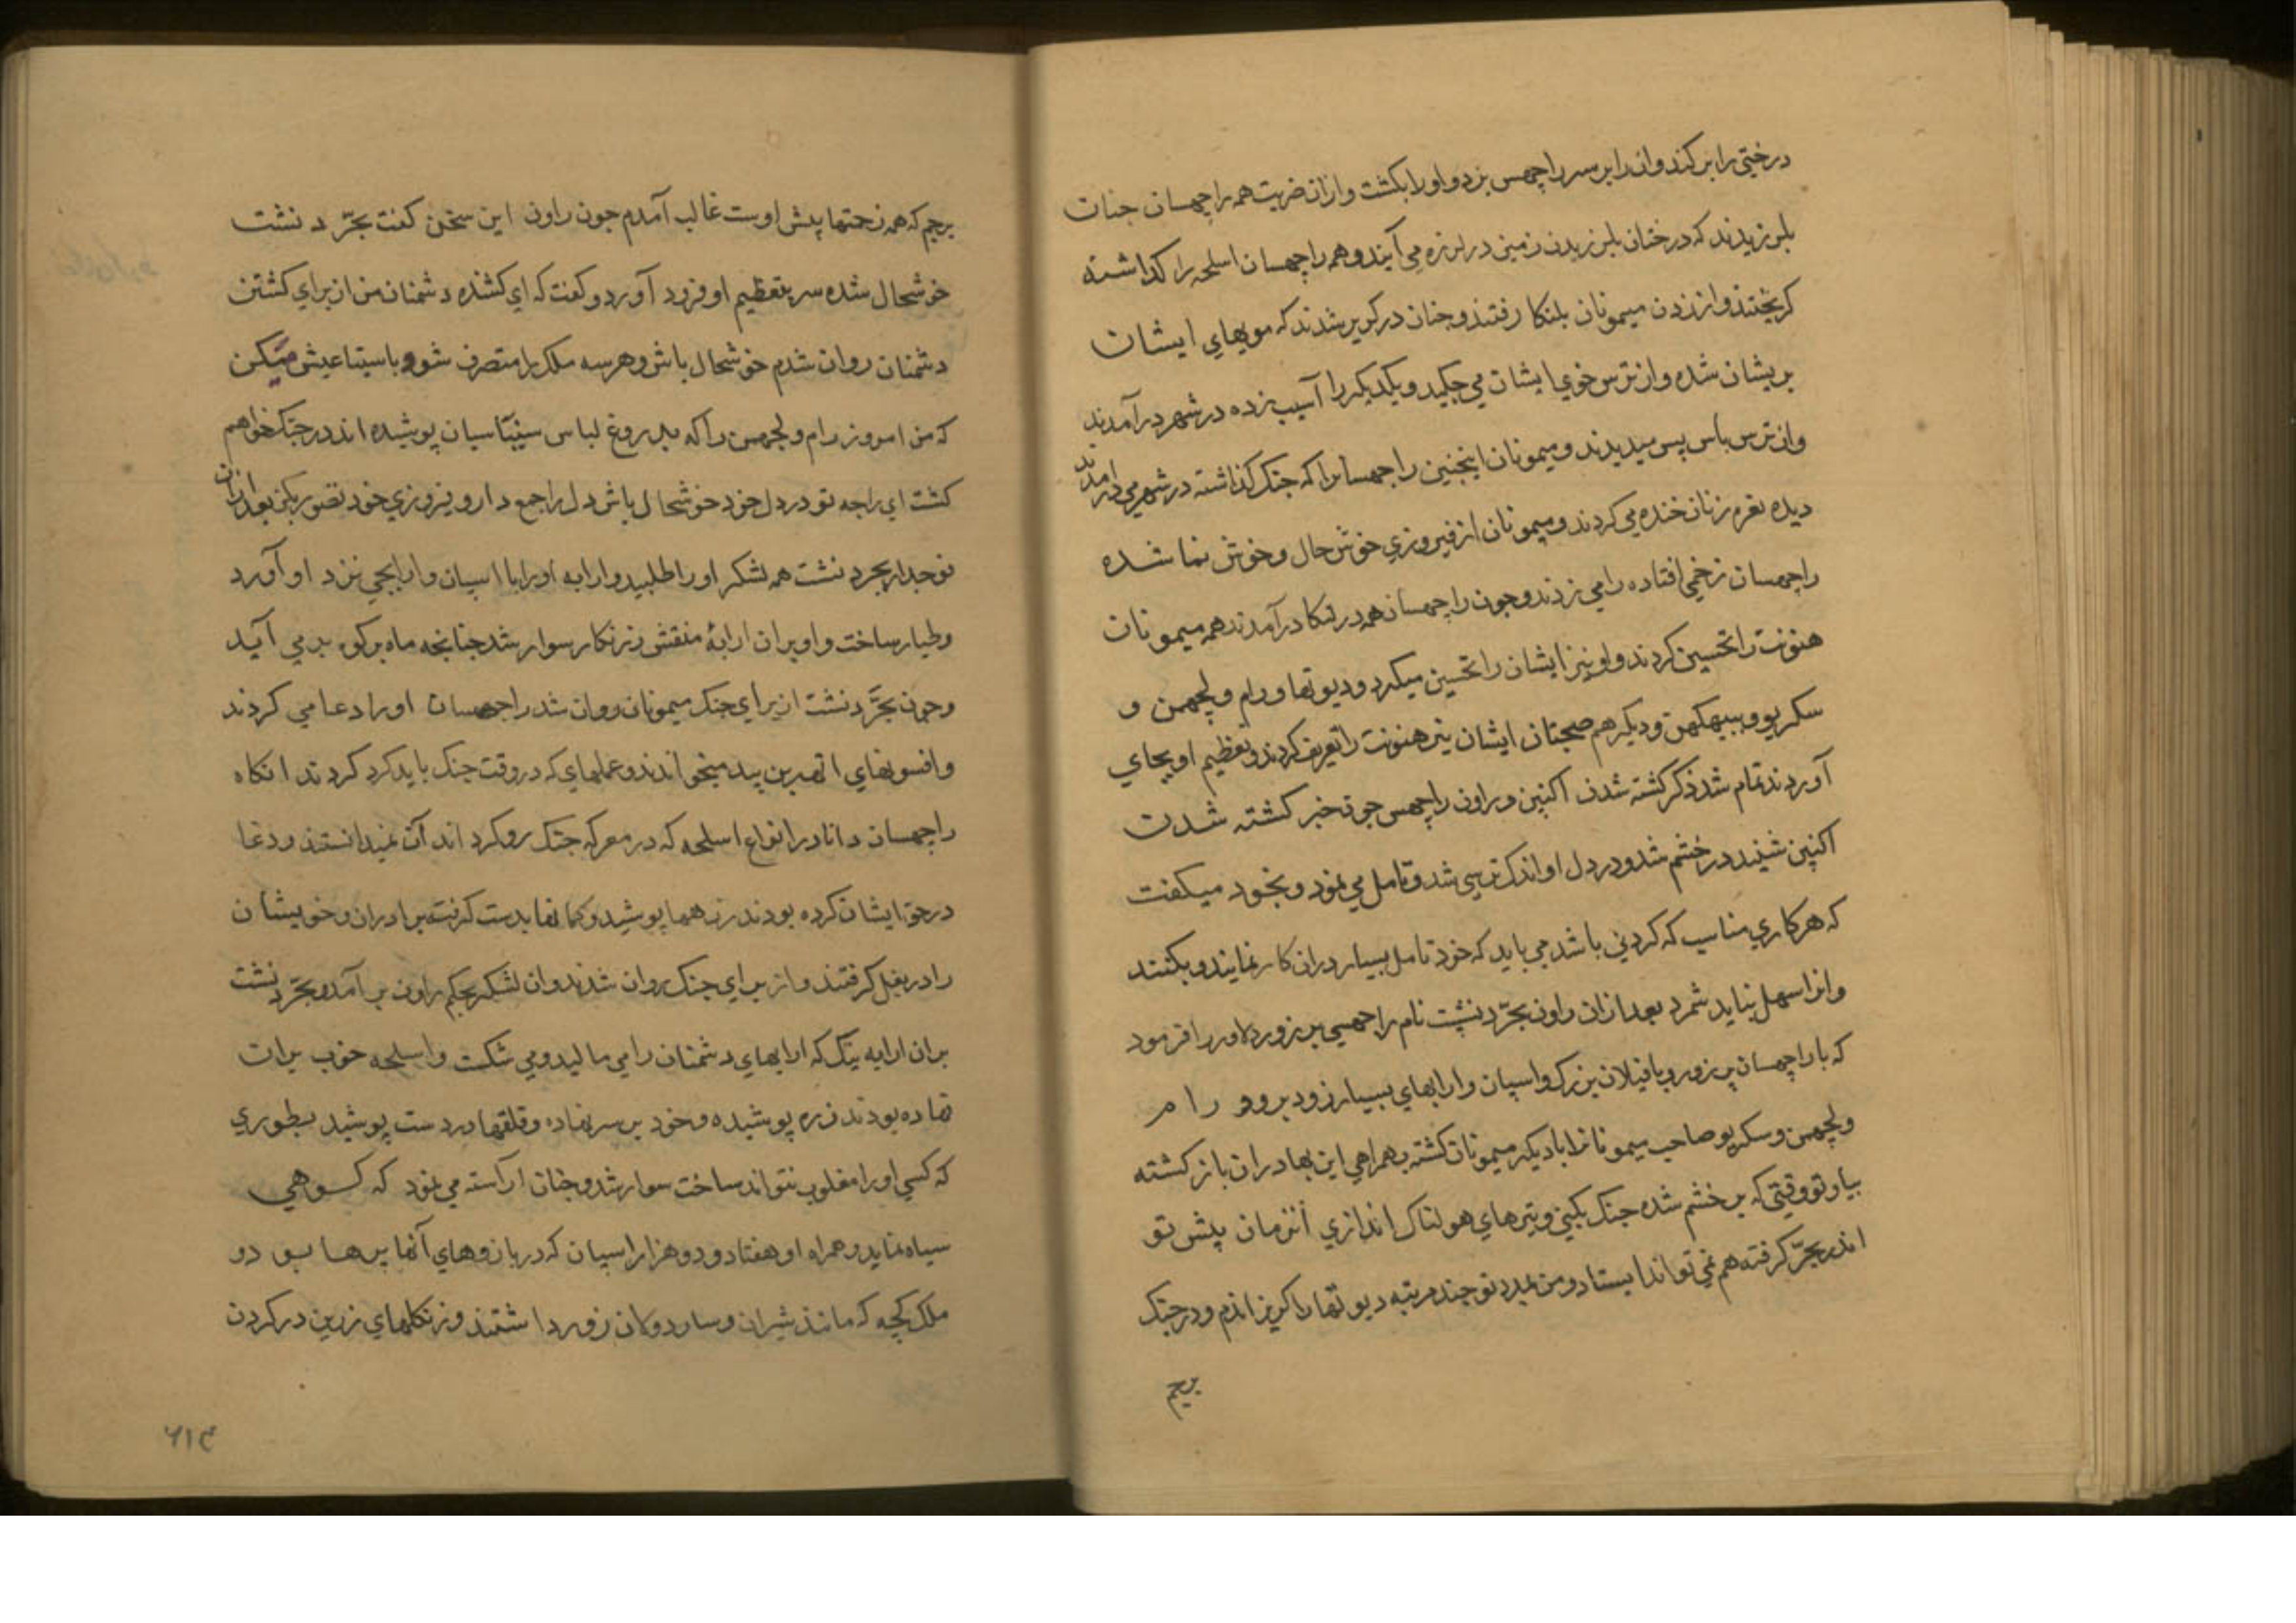 درختي را بر کند وان را بر سر راچهس بزد و اورا بکشت و ازان ضربت همه راچهسان جنات
بلرزیدند که درختان بلرزیدن زمین در لرزه مي آیند و همه راچهسان اسلحه را کداشته
کریختند و از زدن میمونان بلنکا رفتند و جنان در کریز شدند که مویهاي ایشان
بریشان شده و از ترس خوي ایشان مي جکید و یکدیکر را آسیب زده در شهر در آمدند
و از ترس باس پس میدیدند و میمونان اینجنین راجهسانرا که جنک کذاشته در شهر مي درامدند
دیده نعره زنان خنده مي کردند و میمونان از فیروزي خوش حال و خوش نما شده
راچهسان زخمي افتاده را مي زدند و جون راچهسان همه در لنکا در آمدند همه میمونان
هنونت را تحسین کردند و او نیز ایشان را تحسین میکرد و دیوتها و رام و لچهمن و
سکریو و ببیهکهن و دیکر هم صحبتان ایشان نیز هنونت را تعریف کردند و تعظیم او بجاي
آوردند تمام شد ذکر کشته شدن اکنپن و راون راچهس جون خبر کشته شدن
اکنپن شنید در خشم شد و در دل او اندک ترسي شد و تامل مي نمود و بخود میکفت
که هر کاري مناسب که کردني باشد مي باید که خود تامل بسیار دران کار نمایند و بکنند
و انرا سهل نباید شمرد بعد ازان راون بجرّ دنشت نام راجهسي پر زور دلاور را فرمود
که با راچهسان پر زور و با فیلان بزرک و اسپان و ارابهاي بسیار زود برو و رام
و لچهمن و سکریو صاحب میمونانرا با دیکر میمونان کشته بهمراهي این بهادران باز کشته
بیا و تو وقتي که بر خشم شده جنک بکني و تیرهاي هولناک اندازي آنزمان پیش تو
اندر بجرّ کرفته هم نمي تواند ایستاد و من بمدد تو جند مرتبه دیوتها را کریزاندم و در جنک
برجم
برجم که همه زحمتها پیش اوست غالب آمدم جون راون این سخن کفت بجرّ دنشت
خوشحال شده سر بتعظیم او فرود آورد و کفت که اي کشنده دشمنان من از براي کشتن
دشمنان روان شدم خوشحال باش و هر سه ملک را متصرف شو و با سیتا عیش میکن
که من امروز رام و لچهمن را که بدروغ لباس سنیاسیان پوشیده اند در جنک خواهم
کشت اي راجه تو در دل خود خوشحال باش دل را جمع دار و فیروزي خود تصور بکن بعد ازان
فوجدار بجر دنشت همه لشکر او را طلبید و ارابه او را با اسپان و ارابجي نزد او آورد
و طیار ساخت و او بران ارابهٔ منقش زرنکار سوار شد جنانجه ماه بر کوه بر مي آید
و جون بجرّ دنشت از براي جنک میمونان روان شد راجهسان او را دعا مي کردند
و افسونهاي اتهربن بید میخواندند و عملهاي که در وقت جنک باید کرد کردند انکاه
راچهسان دانا در انواع اسلحه که در معرکه جنک رو کرداندن نمیدانستند و دعا
در حق ایشان کرده بودند زرهها پوشید و کمانها بدست کرفته برادران و خویشان
را در بغل کرفتند و از براي جنک روان شدند و ان لشکر بحکم راون بر آمد و بجرّ دنشت
بران ارابه نیک که ارابهاي دشمنان را مي مالید و مي شکست و اسلحه خوب بران
نهاده بودند زره پوشیده و خود بر سر نهاده و قلقها در دست پوشید بطوري
که کسي او را مغلوب نتواند ساخت سوار شد و جنان اراسته مي نمود که کوهي
سیاه نماید و همراه او هفتاد و دو هزار اسپان که در بازوهاي آنها پرها بود و
ملک کچهه که مانند شیران و ساردولان زور داشتند و زنکلهاي زرین در کردن
۶۱۴